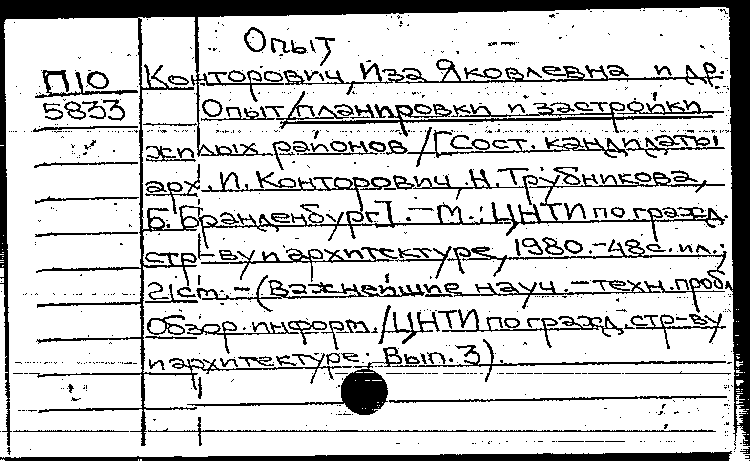 Опыт
П10 Конторович, Иза Яковлевна и др.
5833 Опыт планировки и застройки
жилых районов / [Сост. кандидаты
арх. И. Конторович, Н. Трубникова,
Б. Бранденбург]. - М.: ЦНТИ по гражд.
стр-ву и архитектуре, 1980. - 48с. ил.;
21см. - (Важнейшие науч. - техн. пробл.
Обзор. информ. / ЦНТИ по гражд. стр-ву
и архитектуре; Вып. 3).